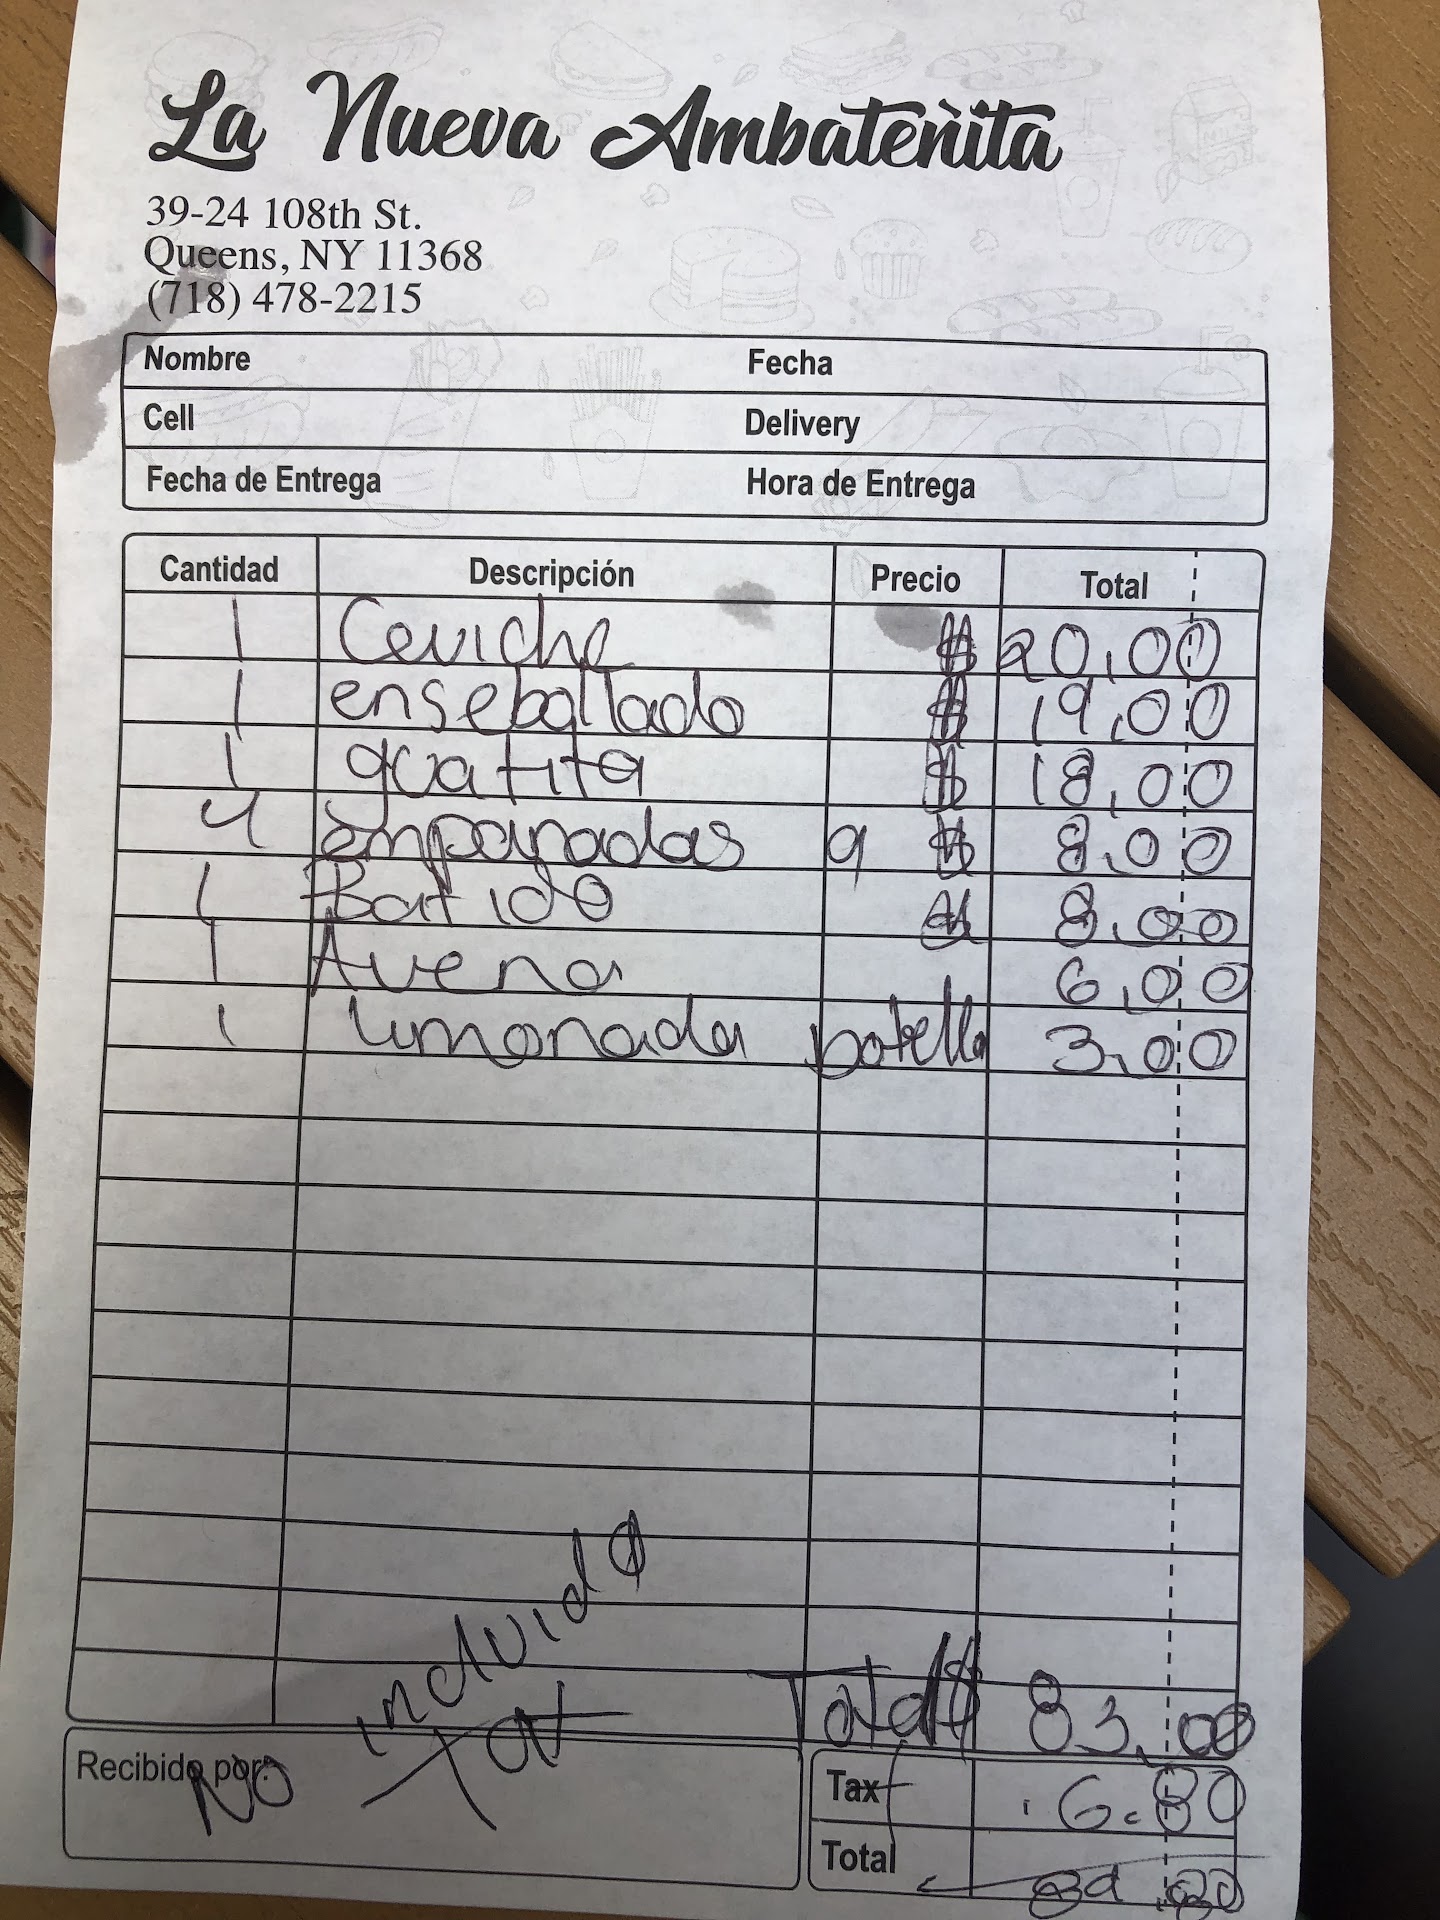 La Nueva Ambateñita
39-24 108th St.
Queens, NY 11368
(718) 478-2215
Nombre Fecha
Cell Delivery
Fecha de Entrega Hora de Entrega
Cantidad Descripción Precio Total
1 Ceviche $ 20,00
1 enseballado $ 19,00
1 guatita $ 18,00
4 empanadas a $ 8,00
1 Batido $ 8,00
1 Avena 6,00
1 limonada botella 3,00
Total $ 83,00
Recibido por:
NO incluido
Tax 6.80
Total 89.80